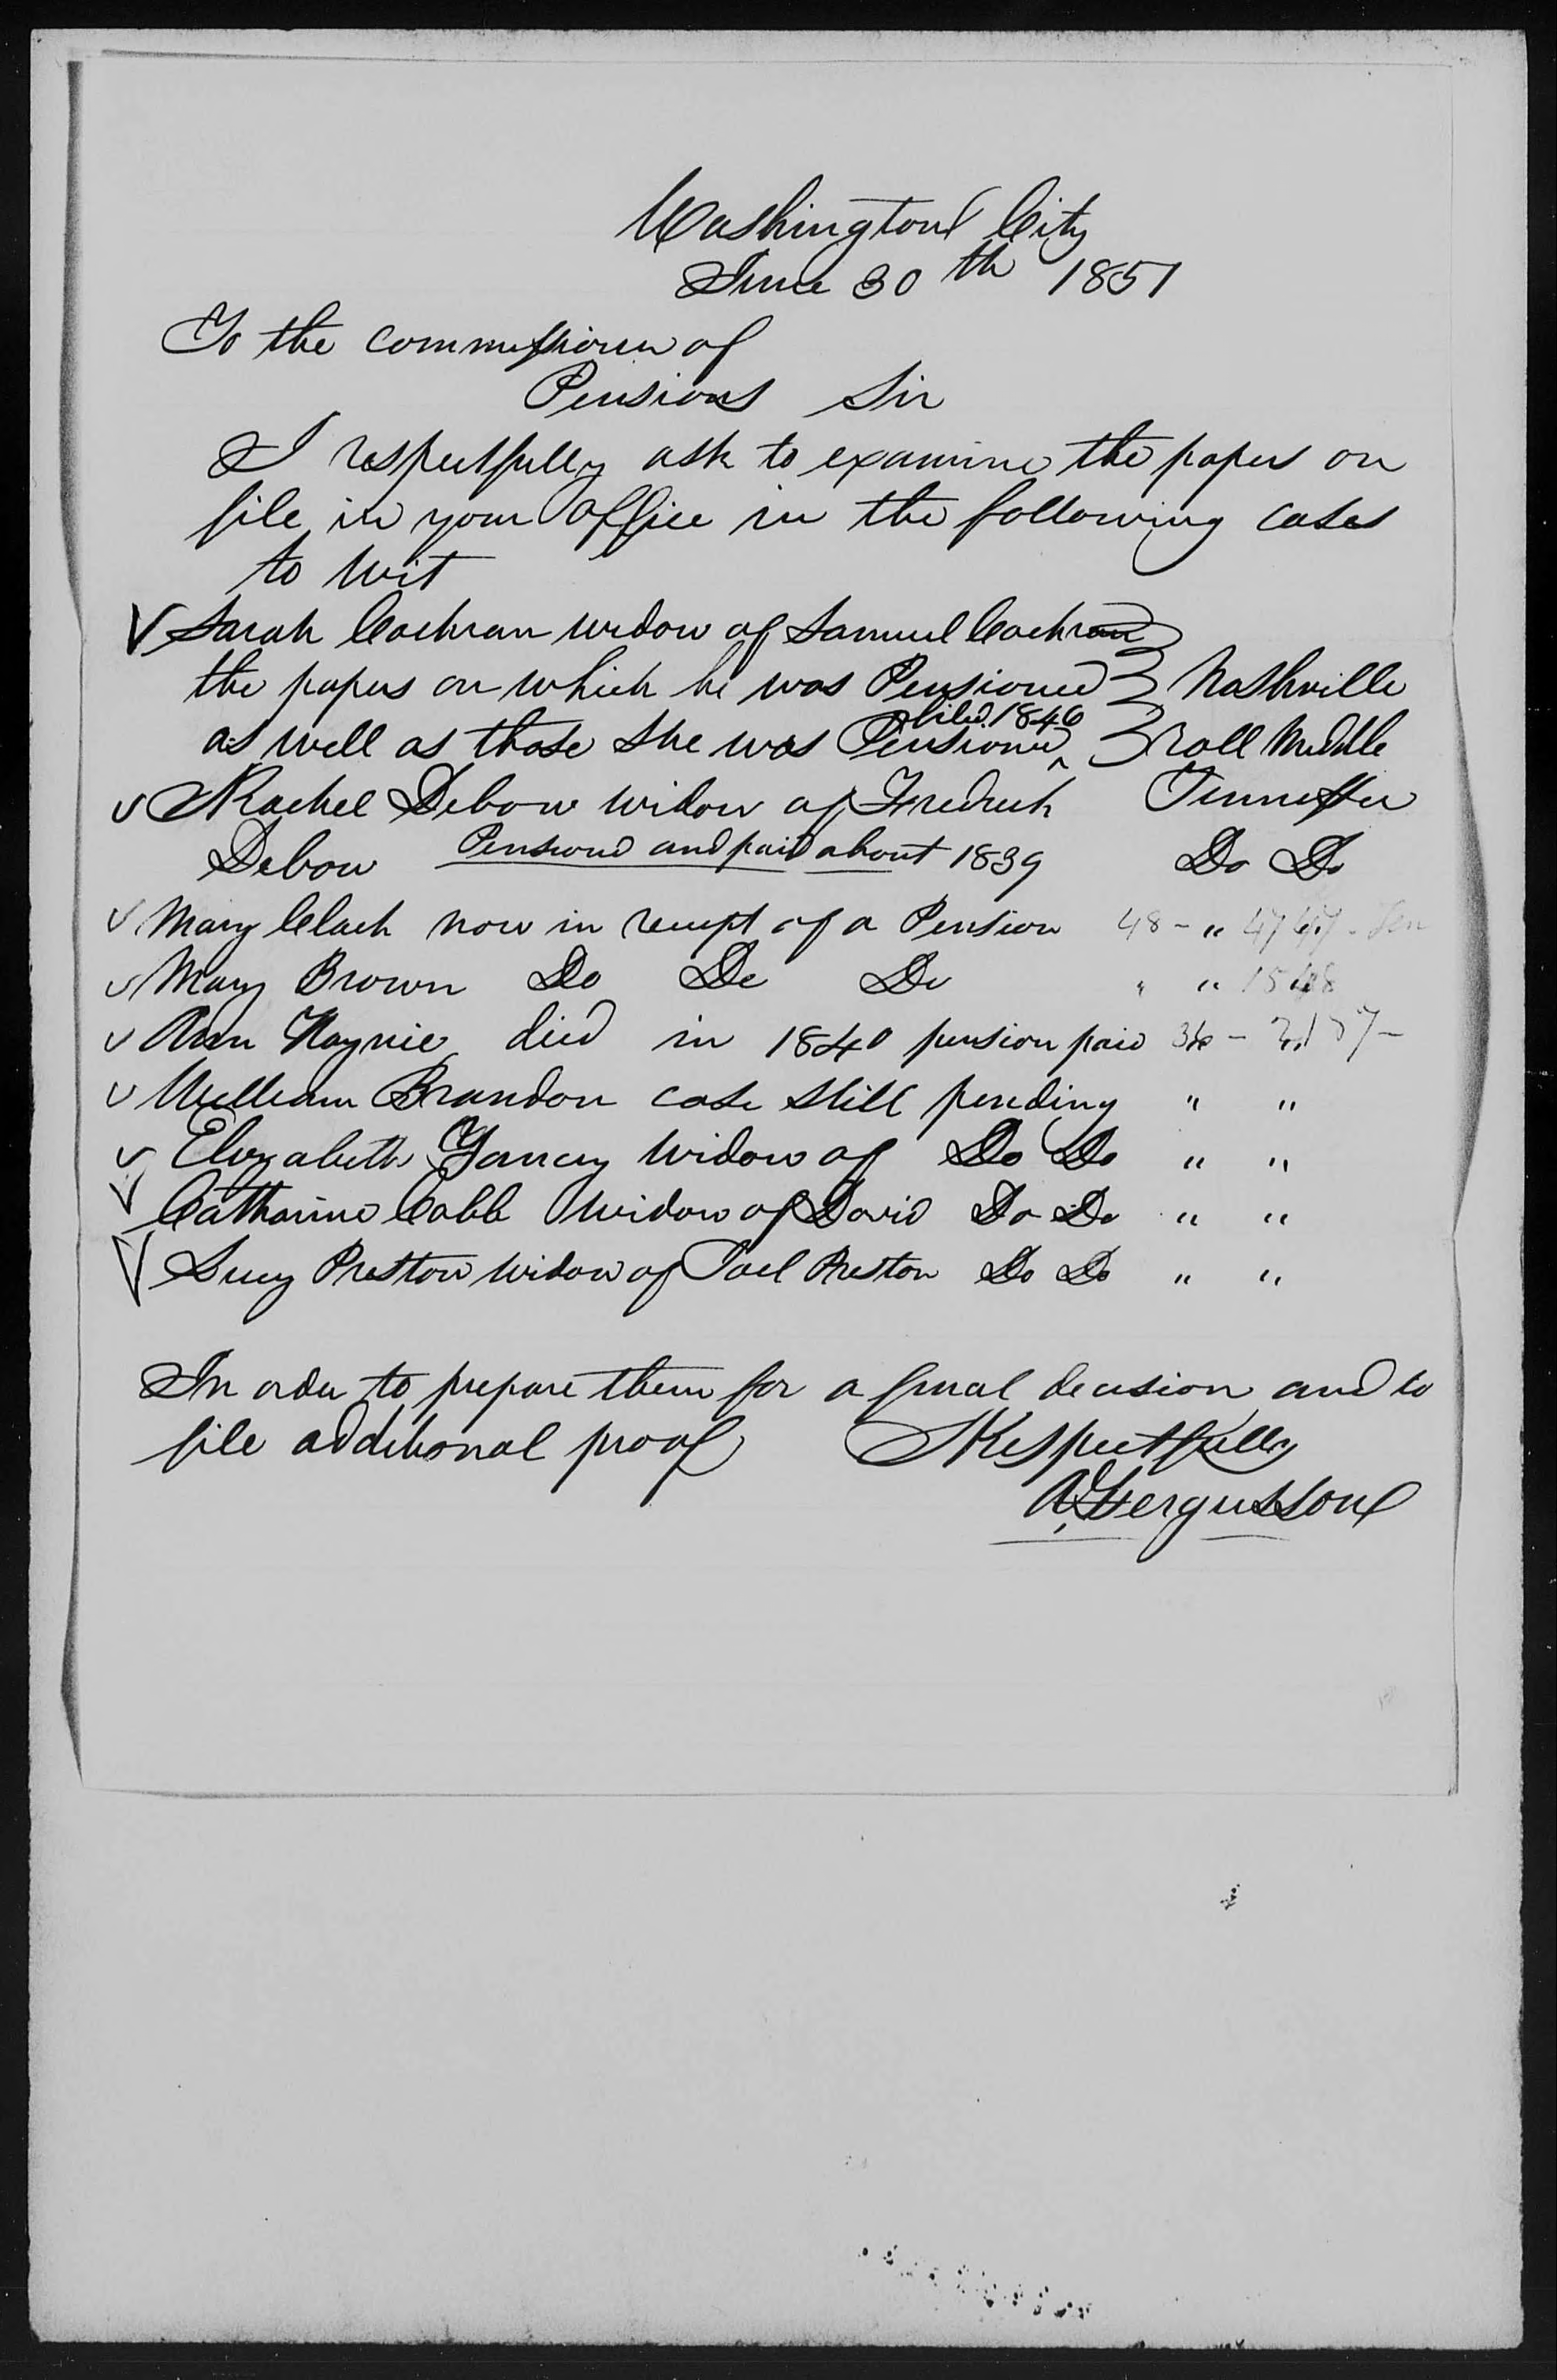 Washington City
June 30th 1851
To the commissioner of
Pensions Sir
I respectfully ask to examine the papers on
file in your office in the following cases
to wit
√ Sarah Cochran widow of Samuel Cochran
the papers on which he was Pensioned } Nashville
filed 1846
as well as those she was Pensioned ^ } roll Middle
√ Rachel Debow widow of Fredrick Tennessee
Debow Pensiond and paid about 1839 Do Do
√ Mary Clark now in receipt of a Pension 48 - "
√ Mary Brown Do Do Do " "
√ Ann Haynie died in 1840 pension paid 36 -
√ William Brandon case still pending " "
√ Elizabeth Yancey widow of Do Do " "
√ Catharine Cobb widow of David Do Do " "
√ Lucy Preston widow of Joel Preston Do Do " "
In order to prepare them for a final decision and to
file additional proof Respectfully
A, Fergusson